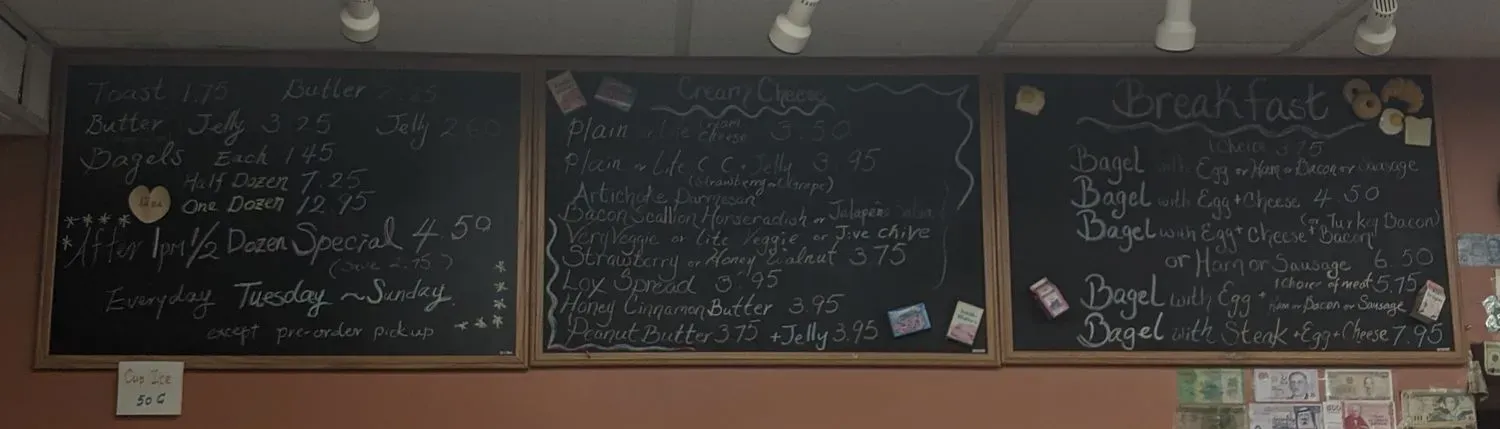 Toast 1.75 Butter 2.25
Butter Jelly 3 25 Jelly 2 60
Bagels Each 1 45
Half Dozen 7.25
12 oz
One Dozen 12.95
****
* After 1pm 1/2 Dozen Special 4.50
(Save 2.75)
Everyday Tuesday ~ Sunday.
except pre-order pickup
Cup Ice
50 ¢
Cream Cheese
Plain or Lite Cream Cheese 3.50
Plain or Lite C C + Jelly 3.95
(Strawberry or Grape)
Artichoke Parmesan
Bacon Scallion Horseradish or Jalapeño
Very Veggie or Lite Veggie or chive
Strawberry or Honey Walnut 3 75
Lox Spread 3.95
Honey Cinnamon Butter 3.95
Peanut Butter 3 75 + Jelly 3.95
Breakfast
1 choice 3.75
Bagel with Egg or Ham or Bacon or Sausage
Bagel with Egg + Cheese 4.50
(or Turkey Bacon)
Bagel with Egg + Cheese + Bacon
or Ham or Sausage 6.50
1 choice of meat 5.75
Bagel with Egg + Ham or Bacon or Sausage
Bagel with Steak + Egg + Cheese 7.95